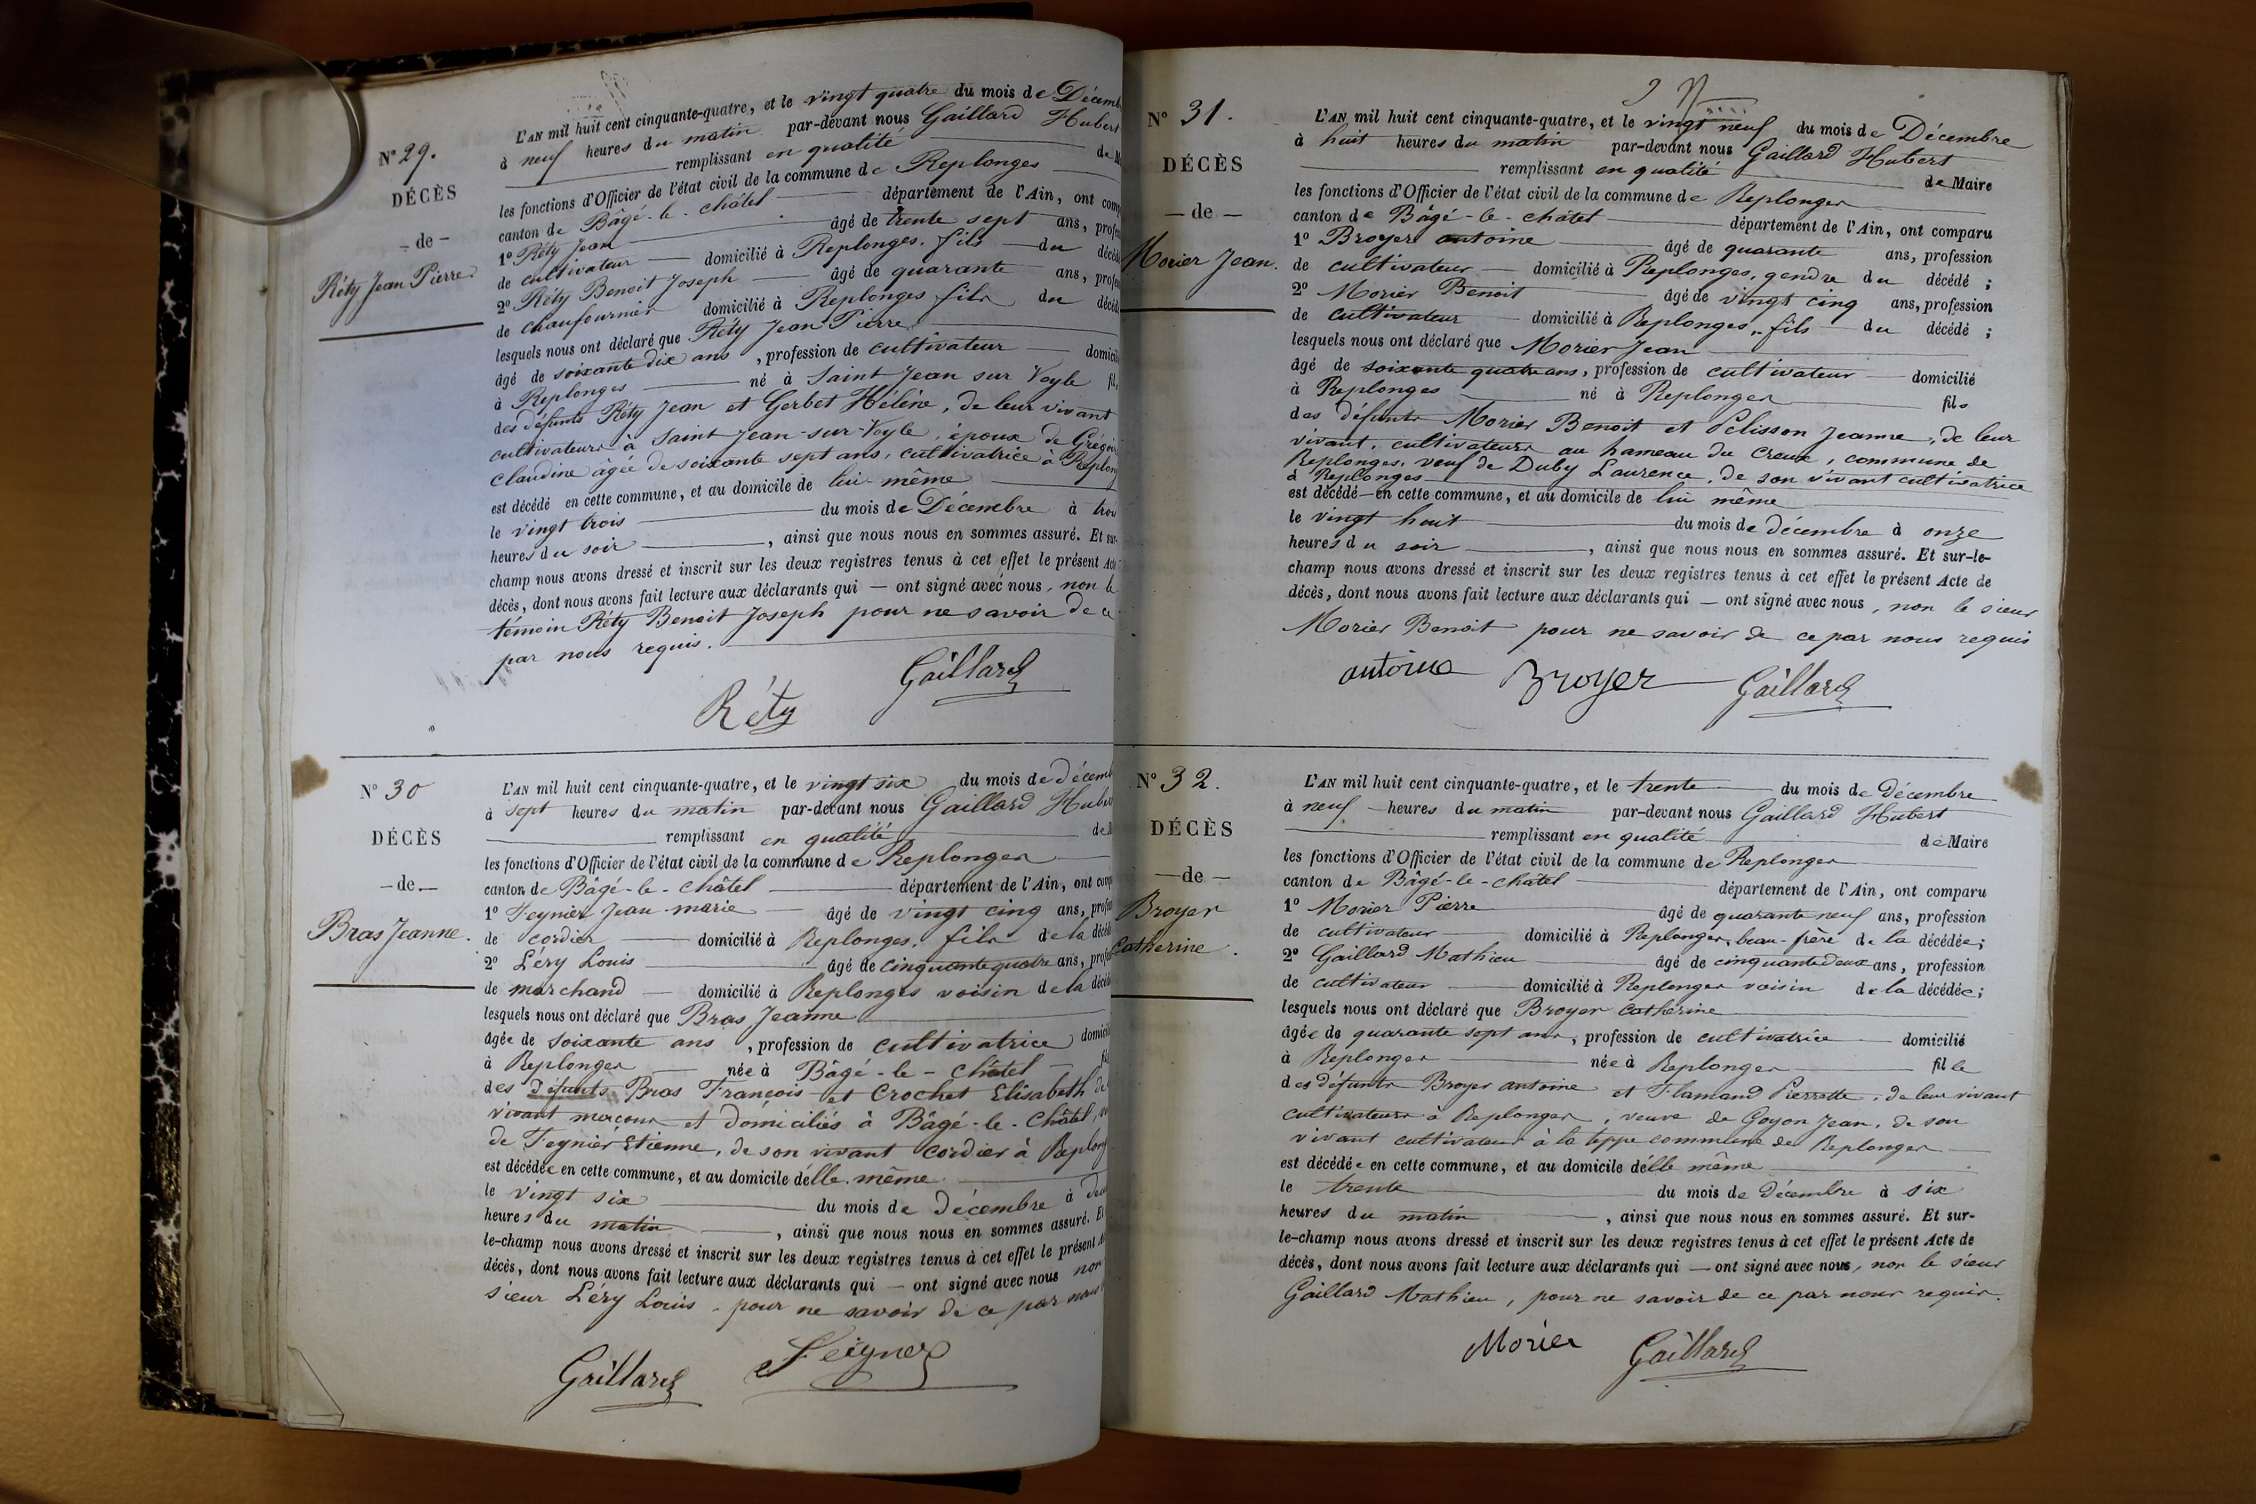 N° 29.
DÉCÈS
- de -
Réty Jean Pierre.
L'AN mil huit cent cinquante-quatre, et le vingt quatre du mois de Décemb
à neuf heures du matin par-devant nous Gaillard Hubert
remplissant en qualité de M
les fonctions d'Officier de l'état civil de la commune de Replonges
canton de Bâgé-le-châtel département de l'Ain, ont comp
1° Réty Jean âgé de trente sept ans, profes
de cultivateur domicilié à Replonges, fils du décéd
2° Réty Benoit Joseph âgé de quarante ans, profes
de chaufournier domicilié à Replonges fils du décéd
lesquels nous ont déclaré que Réty Jean Pierre
âgé de soixante dix ans, profession de cultivateur domicili
à Replonges né à Saint Jean sur Veyle fil
des défunts Réty Jean et Gerbet Hélène, de leur vivant
cultivateurs à Saint Jean-sur-Veyle, époux de Grégoi
Claudine âgée de soixante sept ans, cultivatrice à Replong
est décédé en cette commune, et au domicile de lui même
le vingt trois du mois de Décembre à troi
heures du soir, ainsi que nous nous en sommes assuré. Et sur-
champ nous avons dressé et inscrit sur les deux registres tenus à cet effet le présent Acte
décès, dont nous avons fait lecture aux déclarants qui — ont signé avec nous, non le
témoin Réty Benoit Joseph pour ne savoir de ce
par nous requis.
Réty Gaillard
N° 30
DÉCÈS
- de -
Bras Jeanne.
L'AN mil huit cent cinquante-quatre, et le vingt six du mois de décemb
à sept heures du matin par-devant nous Gaillard Huber
remplissant en qualité de M
les fonctions d'Officier de l'état civil de la commune de Replonges
canton de Bâgé-le-châtel département de l'Ain, ont comp
1° Feynier Jean marie âgé de vingt cinq ans, profes
de cordier domicilié à Replonges, fils de la décéd
2° Léry Louis âgé de cinquante quatre ans, profes
de marchand domicilié à Replonges voisin de la décéd
lesquels nous ont déclaré que Bras Jeanne
âgée de soixante ans, profession de cultivatrice domicili
à Replonges née à Bâgé-le-châtel fil
des défunts Bras François et Crochet Elisabeth de
vivant merciers et domiciliés à Bâgé-le-Châtel,
de Feynier Etienne, de son vivant cordier à Replong
est décédée en cette commune, et au domicile d'elle même
le vingt six du mois de décembre à deux
heures du matin, ainsi que nous nous en sommes assuré. Et
le-champ nous avons dressé et inscrit sur les deux registres tenus à cet effet le présent A
décès, dont nous avons fait lecture aux déclarants qui — ont signé avec nous non
sieur Léry Louis, pour ne savoir de ce par nous
Gaillard Feigner
N° 31.
DÉCÈS
- de -
Morier Jean.
L'AN mil huit cent cinquante-quatre, et le vingt neuf du mois de Décembre
à huit heures du matin par-devant nous Gaillard Hubert
remplissant en qualité de Maire
les fonctions d'Officier de l'état civil de la commune de Replonges
canton de Bâgé-le-châtel département de l'Ain, ont comparu
1° Broyer antoine âgé de quarante ans, profession
de cultivateur domicilié à Replonges, gendre du décédé ;
2° Morier Benoit âgé de vingt cinq ans, profession
de cultivateur domicilié à Replonges, fils du décédé ;
lesquels nous ont déclaré que Morier Jean
âgé de soixante quatre ans, profession de cultivateur domicilié
à Replonges né à Replonges fils
des défunts Morier Benoit et Pélisson Jeanne, de leur
vivant, cultivateurs au hameau du Creux, commune de
Replonges, veuf de Duby Laurence, de son vivant cultivatrice
à Replonges
est décédé en cette commune, et au domicile de lui même
le vingt huit du mois de décembre à onze
heures du soir, ainsi que nous nous en sommes assuré. Et sur-le-
champ nous avons dressé et inscrit sur les deux registres tenus à cet effet le présent Acte de
décès, dont nous avons fait lecture aux déclarants qui — ont signé avec nous, non le sieur
Morier Benoit pour ne savoir de ce par nous requis
antoine Broyer Gaillard
N° 32.
DÉCÈS
- de -
Broyer
Catherine.
L'AN mil huit cent cinquante-quatre, et le trente du mois de décembre
à neuf heures du matin par-devant nous Gaillard Hubert
remplissant en qualité de Maire
les fonctions d'Officier de l'état civil de la commune de Replonges
canton de Bâgé-le-châtel département de l'Ain, ont comparu
1° Morier Pierre âgé de quarante neuf ans, profession
de cultivateur domicilié à Replonges, beau-frère de la décédée ;
2° Gaillard Mathieu âgé de cinquante deux ans, profession
de cultivateur domicilié à Replonges voisin de la décédée ;
lesquels nous ont déclaré que Broyer Catherine
âgée de quarante sept ans, profession de cultivatrice domicilié
à Replonges née à Replonges fille
des défunts Broyer antoine et Flamand Pierrette, de leur vivant
cultivateurs à Replonges, veuve de Goyon Jean, de son
vivant cultivateur à la teppe commune de Replonges
est décédée en cette commune, et au domicile d'elle même
le trente du mois de décembre à six
heures du matin, ainsi que nous nous en sommes assuré. Et sur-
le-champ nous avons dressé et inscrit sur les deux registres tenus à cet effet le présent Acte de
décès, dont nous avons fait lecture aux déclarants qui — ont signé avec nous, non le sieur
Gaillard Mathieu, pour ne savoir de ce par nous requis.
Morier Gaillard